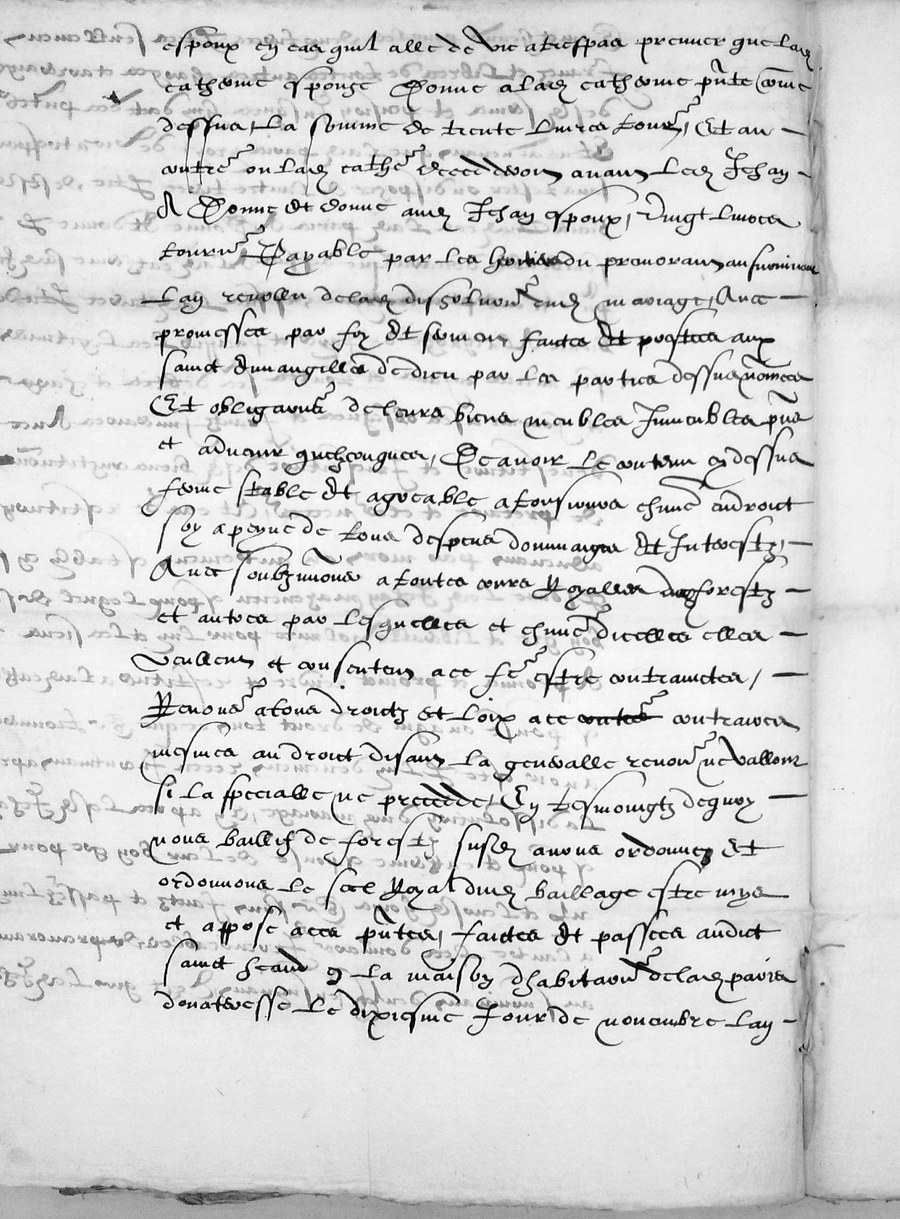 espoux en cas quil alle de vie a trespas premier que lad
catherine espouse Donne a lad catherine pnte come
dessus La somme de trente Livres tour Et au
contre ou lad cathe decedderoit avant Led Jehan
A Donne et donne aud Jehan espoux vingt Livres
tourn Payable par les du premorant
Lan revollu delad dissolution dud mariage Avec
promesses par foy et serment faictes et prestees aux
sainct evvangilles de dieu par les parties dessus nomees
Et obligations de leurs biens meubles Immeubles pns
et advenir quelzconques De avoir le contenu cy dessus
ferme stable et agreable a tousiours chune endroict
soy a peyne de tous despens dommaiges et Interestz
Avec soubzmions a toutes cours Royalles de forestz
et autres par lesquelles et chune dicelles elles
veullent et consentent a ce fe estre contrainctes
Renons a tous droictz et Loix a ce contraires
mesmes au droict disant La generalle renon ne valloir
si la specialle ne precedde En tesmoingtz de quoy
nous bailli de forestz susd avons ordonne Et
ordonnons Le scel Royal dud bailliage estre mys
et appose a ces pntes faictes et passees audict
sainct heand La maison dhabitaon delad
donateresse Le dixiesme Jour de novembre Lan